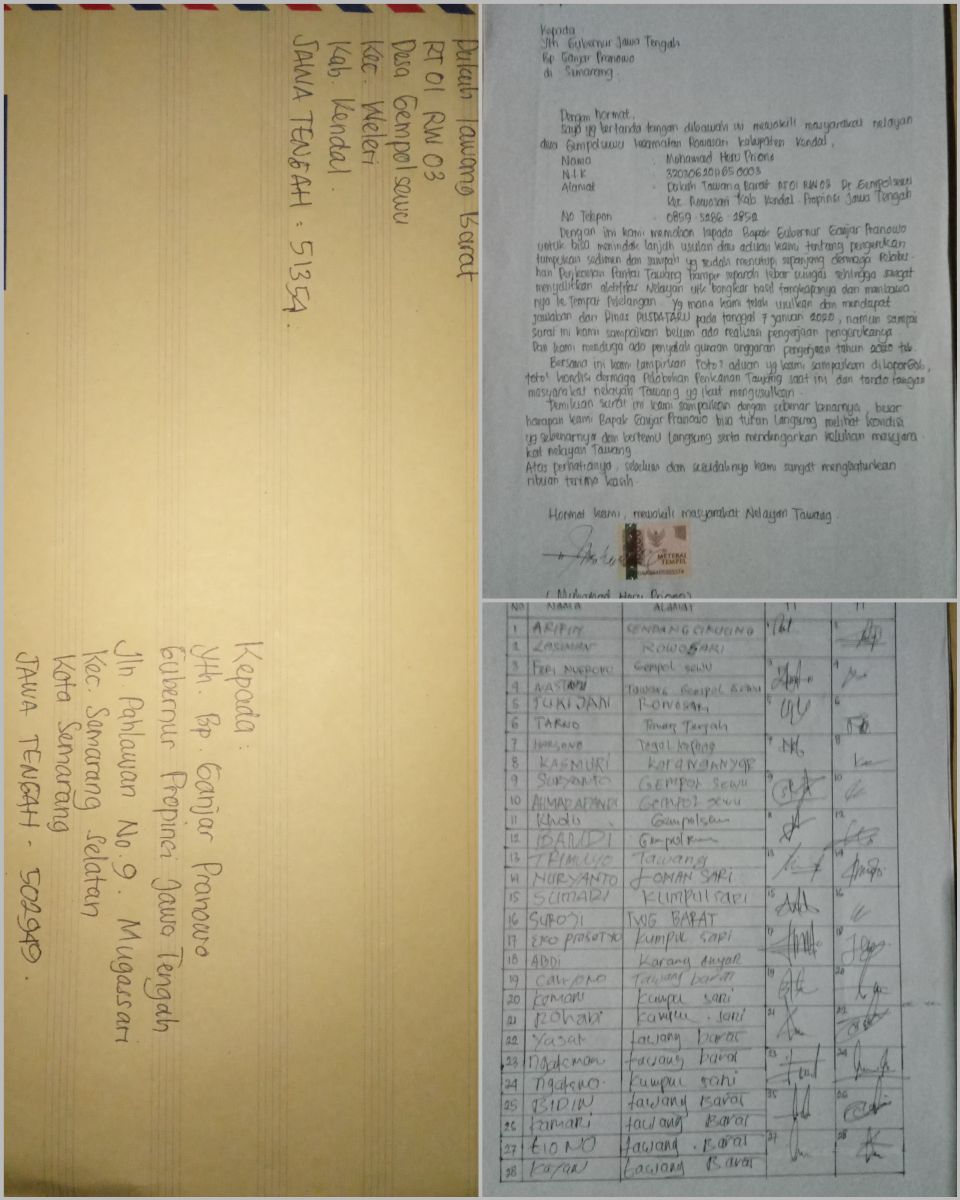 Dukuh Tawang Barat
RT 01 RW 03
Desa Gempolsewu
Kec. Weleri
Kab. Kendal.
JAWA TENGAH : 51354.
Kepada :
Yth. Bp. Ganjar Pranowo
Gubernur Propinsi Jawa Tengah
Jln. Pahlawan No. 9. Mugassari
Kec. Semarang Selatan
Kota Semarang
JAWA TENGAH - 502949.
Kepada
Yth Gubernur Jawa Tengah
Bp Ganjar Pranowo
di Semarang.
Dengan hormat,
Saya yg bertanda tangan dibawah ini mewakili masyarakat nelayan
desa Gempolsewu kecamatan Rowosari Kabupaten Kendal,
Nama : Mohamad Heru Priono
N.I.K :
Alamat : Dukuh Tawang Barat RT 01 RW 03 Ds Gempolsewu
Kec Rowosari Kab Kendal Propinsi Jawa Tengah
No Telpon : 0859 - 5286 - 2852
Dengan ini kami memohon kepada Bapak Gubernur Ganjar Pranowo
untuk bisa menindak lanjuti usulan dan aduan kami tentang pengerukan
tumpukan sedimen dan sampah yg sudah menutupi sepanjang dermaga Pelabu-
han Perikanan Pantai Tawang hampir separoh lebar sungai sehingga sangat
menyulitkan aktifitas Nelayan utk bongkar hasil tangkapanya dan membawa
nya ke Tempat Pelelangan. Yg mana kami telah usulkan dan mendapat
jawaban dari Dinas PUSDATARU pada tanggal 7 Januari 2020, namun sampai
surat ini kami sampaikan belum ada realisasi pengerjaan pengerukanya.
Dan kami menduga ada penyalah gunaan anggaran pengerjaan tahun 2020 tsb.
Bersama ini kami lampirkan Foto2 aduan yg kami sampaikan di LaporGub,
foto2 kondisi dermaga Pelabuhan Perikanan Tawang saat ini dan tanda tangan
masyarakat nelayan Tawang yg ikut mengusulkan.
Demikian surat ini kami sampaikan dengan sebenar benarnya, besar
harapan kami Bapak Ganjar Pranowo bisa turun langsung melihat kondisi
yg sebenarnya dan bertemu langsung serta mendengarkan keluhan masyara-
kat nelayan Tawang
Atas perhatianya, sebelum dan sesudahnya kami sangat menghaturkan
ribuan terima kasih.
Hormat kami, mewakili masyarakat Nelayan Tawang.
METERAI
TEMPEL
( Muhamad Heru Priono)
No NAMA ALAMAT
1 ARIFIN SENDANG SIKUCING
2 KASIMAN ROWOSARI
3 FERI NUGROHO Gempol sewu
4 NASTAIN Tawang Gempol sewu
5 JUKIJAN ROWOSARI
6 TARNO Tawang Tengah
7 HARSONO
8 KASMURI KARANGANYAR
9 SURYANTO GEMPOL SEWU
10 AHMAD AFANDI GEMPOL SEWU
11 Kholis Gempolsewu
12 DANDI
13 TRIMULYO Tawang
14 NURYANTO JOMAN SARI
15 SUMARI KUMPULSARI
16 SUROJI TWG BARAT
17 EKO PRASETYO kumpul sari
18 ABDI Karang anyar
19 CAHYONO Tawang barat
20 Komari Kumpul sari
21 ROhani kumpul sari
22 Yasat tawang barat
23 Ngateman tawang barat
24 Ngateno kumpul sari
25 BIDIN tawang Barat
26 Kamari tawang Barat
27 tawang Barat
28 KaYaN tawang Barat